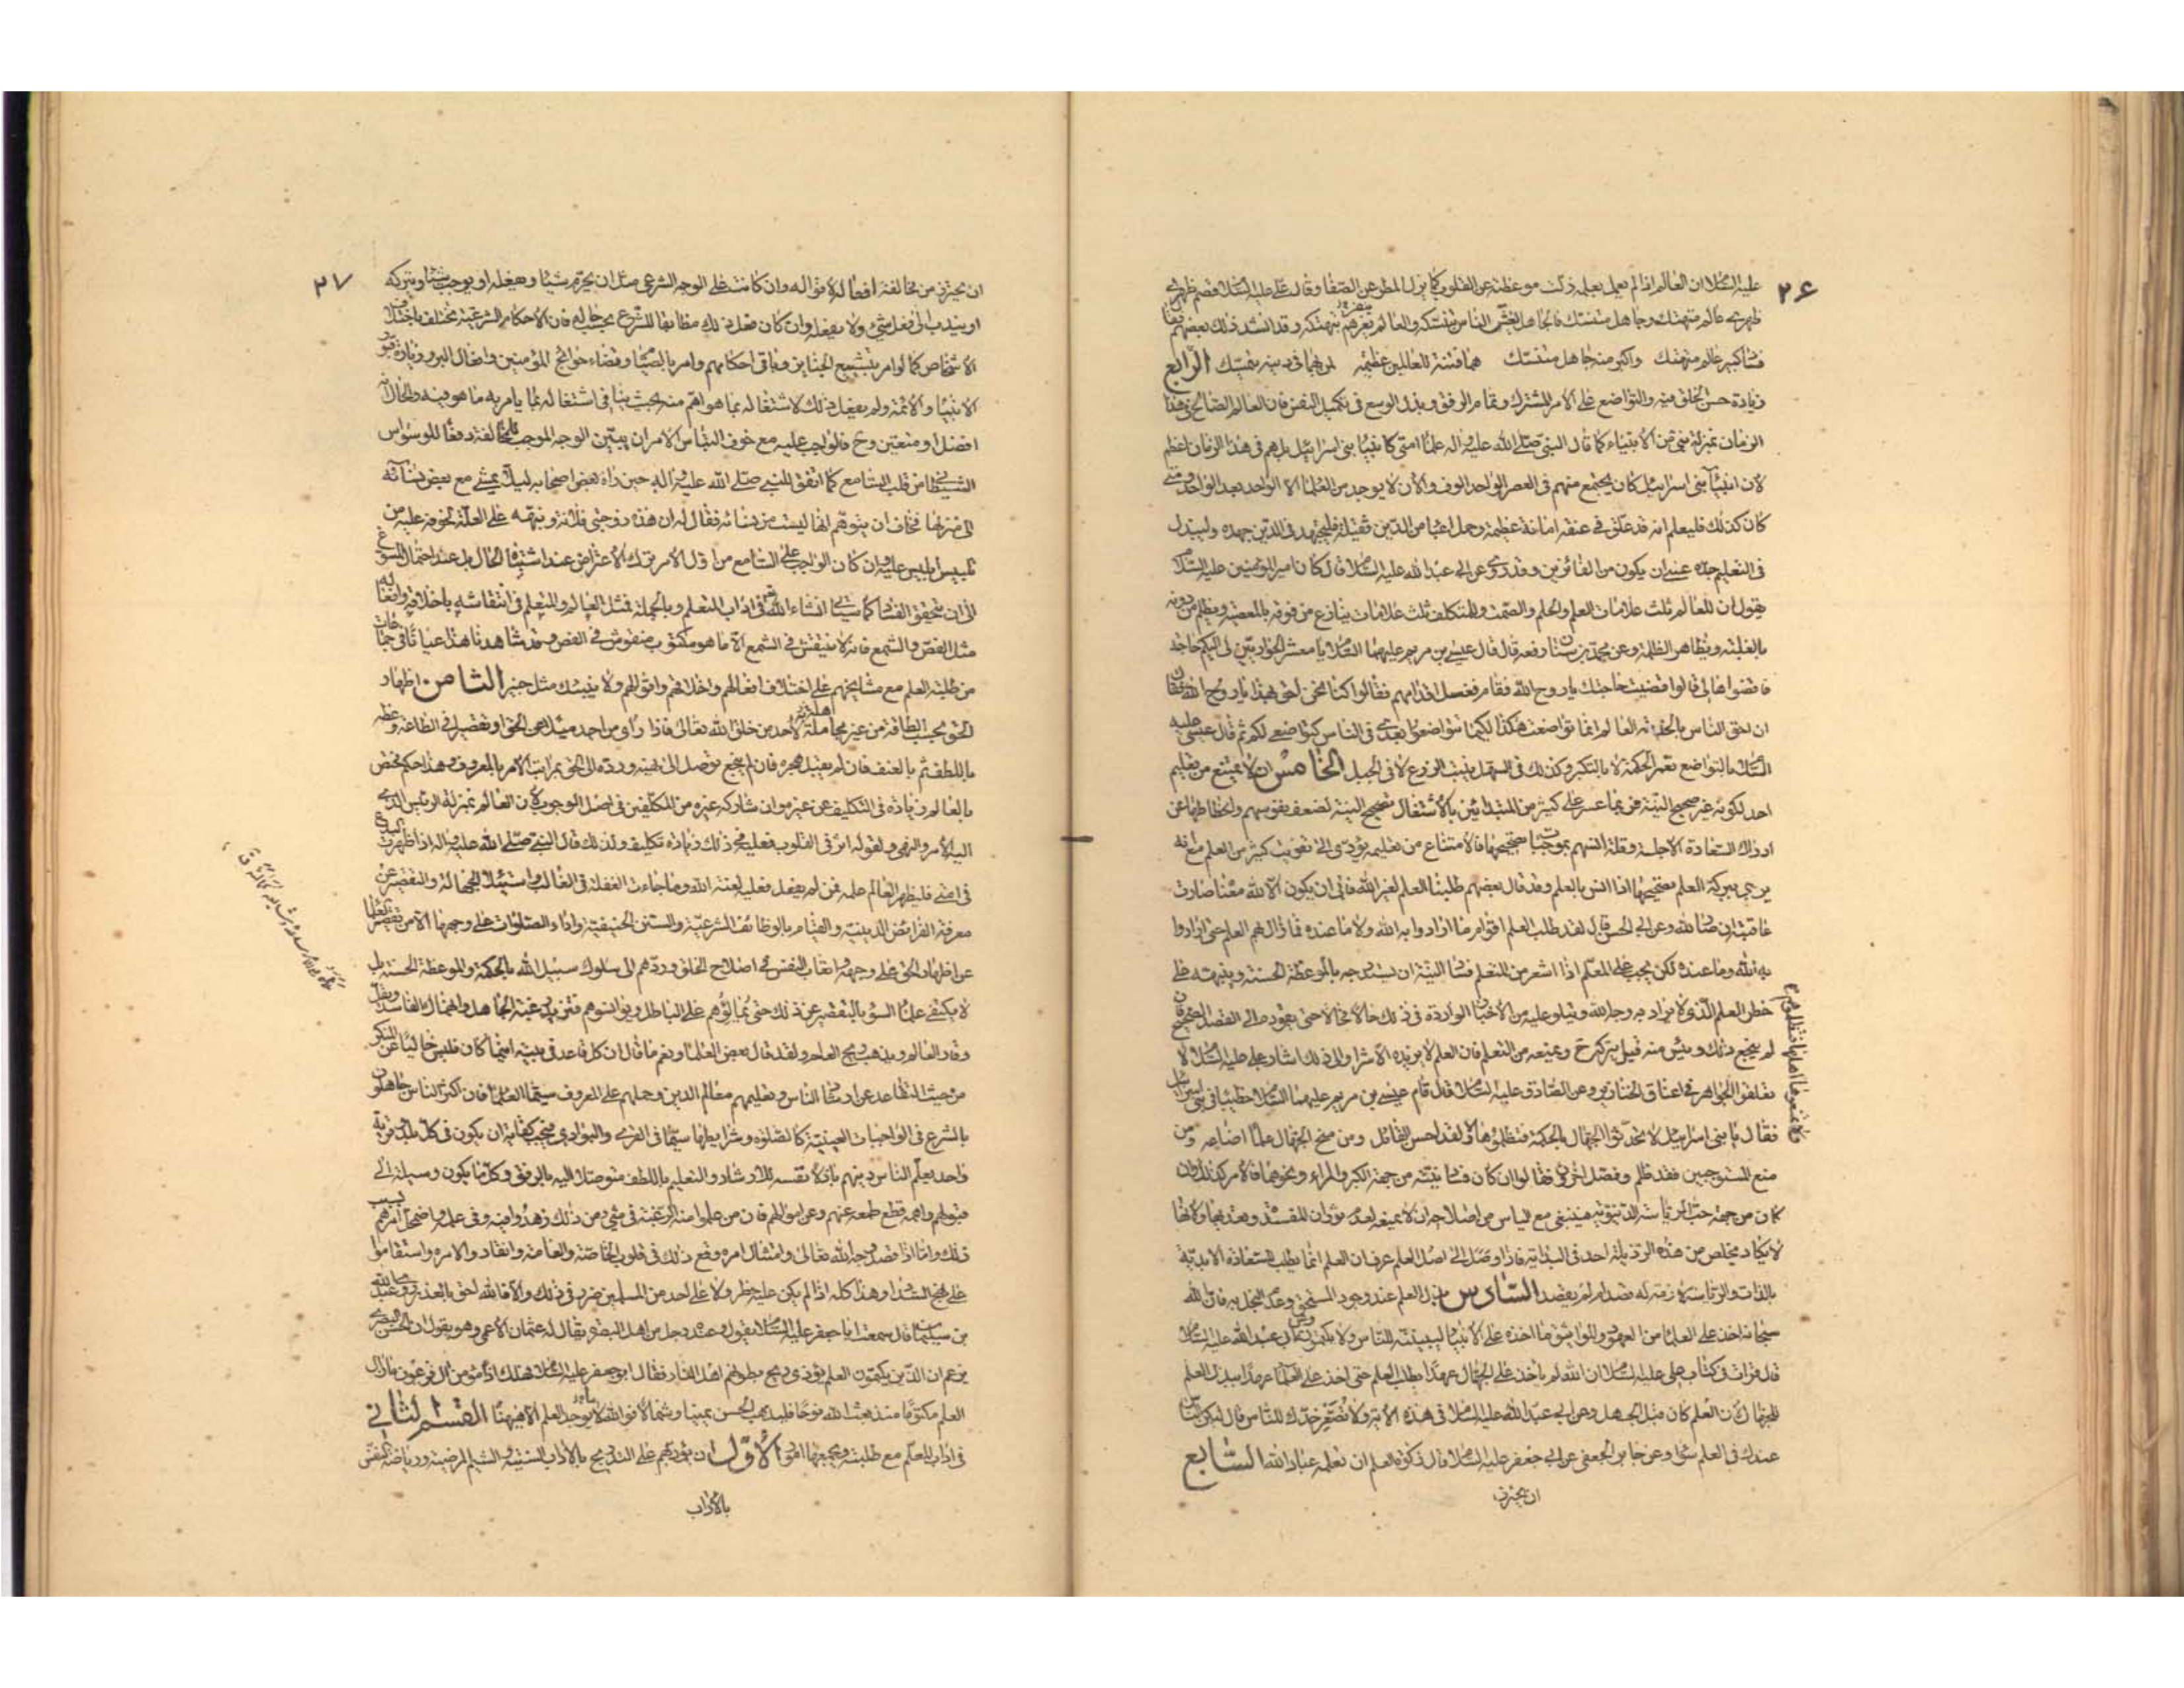 ٢۶
عليه السلام ان العالم اذا لم يعمل بعلمه زلت موعظته عن القلوب كما يزل المطر عن الصفا وقال علي عليه السلام قصم ظهري
عالم متهتك وجاهل متنسك فالجاهل يغش الناس بتنسكه والعالم يغرهم بتهتكه وقد انشد ذلك بعضهم
فساد كبير عالم متهتك واكبر منه جاهل متنسك هما فتنة للعالمين عظيمة لمن بهما في دينه يتمسك الرابع
زيادة حسن الخلق فيه والتواضع على الامر المشترك وتمام الرفق وبذل الوسع في تكميل النفس فان العالم الصالح في هذا
الزمان بمنزلة نبي من الانبياء كما قال النبي صلى الله عليه واله علماء امتي كانبياء بني اسرائيل بل هم في هذا الزمان اعظم
لان انبياء بني اسرائيل كان يجتمع منهم في العصر الواحد الوف والان لا يوجد من العلماء الا الواحد بعد الواحد ومتى
كان كذلك فليعلم انه قد علق في عنقه امانة عظيمة وحمل اعباء من الدين ثقيلة فليجتهد في الدين جهده وليبذل
في التعليم جده عسى ان يكون من الفائزين وقد روي عن ابي عبد الله عليه السلام قال كان امير المؤمنين عليه السلام
يقول ان للعالم ثلث علامات العلم والحلم والصمت وللمتكلف ثلث علامات ينازع من فوقه بالمعصية ويظلم من دونه
بالغلبة ويظاهر الظلمة وعن محمد بن سنان رفعه قال قال عيسى بن مريم عليهما السلام يا معشر الحواريين لي اليكم حاجة
فاقضوها لي قالوا قضيت حاجتك يا روح الله فقام فغسل اقدامهم فقالوا كنا نحن احق بهذا يا روح الله فقال
ان احق الناس بالخدمة العالم انما تواضعت هكذا لكيما تتواضعوا بعدي في الناس كتواضعي لكم ثم قال عيسى عليه
السلام بالتواضع تعمر الحكمة لا بالتكبر وكذلك في السهل ينبت الزرع لا في الجبل الخامس ان لا يمتنع من تعليم
احد لكونه غير صحيح النية فربما عسر على كثير من المبتدئين بالاشتغال تصحيح النية لضعف نفوسهم وانحطاطها عن
ادراك السعادة الاجلة وقلة انسهم بموجبات تصحيحها فالامتناع من تعليمهم يؤدي الى تفويت كثير من العلم مع انه
يرجى ببركة العلم تصحيحها اذا انس بالعلم وقد قال بعضهم طلبنا العلم لغير الله فابى ان يكون الا لله معناه صارت
عاقبته ان صار لله وعن ابي الحسن قال لقد طلب العلم اقوام ما ارادوا به الله ولا ما عنده فما زال بهم العلم حتى ارادوا
به الله وما عنده لكن يجب على المعلم اذا اشعر من المتعلم فساد النية ان يستدرجه بالموعظة الحسنة وينبهه على
خطر العلم الذي لا يراد به وجه الله ويتلو عليه من الاخبار الواردة في ذلك حالا فحالا حتى يقوده الى القصد الصحيح فان
لم ينجع ذلك ويئس منه قيل يتركه ح ويمنعه من التعلم فان العلم لا يزيده الا شرا والى ذلك اشار علي عليه السلام لا
تعلقوا الجواهر في اعناق الخنازير وعن الصادق عليه السلام قال قام عيسى بن مريم عليهما السلام خطيبا في بني اسرائيل
فقال يا بني اسرائيل لا تحدثوا الجهال بالحكمة فتظلموها ولقد احسن القائل ومن منح الجهال علما اضاعه ومن
منع المستوجبين فقد ظلم وفصل اخرون فقالوا ان كان فساد نيته من جهة الكبر والمراء ونحوهما فالامر كذلك وان
كان من جهة حب الرياسة الدنيوية فينبغي مع الياس من اصلاحه ان لا يمنعه لعدم ثوران المفسدة وبعدها ولانها
لا يكاد يخلص من هذه الرذيلة احد في البداية فاذا وصل الى اصل العلم عرف ان العلم انما يطلب للسعادة الابدية
بالذات والرياسة لازمة له قصد ام لم يقصد السادس بذل العلم عند وجود المستحق وعدم البخل به فان الله
سبحانه اخذ على العلماء من العهود والمواثيق ما اخذه على الانبياء ليبيننه للناس ولا يكتمونه وعن ابي عبد الله عليه السلام
قال قرات في كتاب علي عليه السلام ان الله لم ياخذ على الجهال عهدا بطلب العلم حتى اخذ على العلماء عهدا ببذل العلم
للجهال لان العلم كان قبل الجهل وعن ابي عبد الله عليه السلام في هذه الاية ولا تصعر خدك للناس قال ليكن الناس
عندك في العلم سواء وعن جابر الجعفي عن ابي جعفر عليه السلام قال زكوة العلم ان تعلمه عباد الله السابع
ان يحترز
٢٧
ان يحترز من مخالفة افعاله لاقواله وان كانت على الوجه الشرعي مثل ان يحرم شيئا ويفعله او يوجب شيئا ويتركه
او يندب الى فعل شيء ولا يفعله وان كان فعل ذلك مطابقا للشرع بحسب حاله فان الاحكام الشرعية تختلف باختلاف
الاشخاص كما لو امر بتشييع الجنايز وباقي احكامهم وامر بالصيام وقضاء حوائج المؤمنين وافعال البر وزيارة قبور
الانبياء والائمة ولم يفعل ذلك لاشتغاله بما هو اهم منه بحيث ينافي اشتغاله بما يامر به ما هو فيه والحال انه
افضل او متعين وح فالواجب عليه مع خوف التباس الامر ان يبين الوجه الموجب للمخالفة دفعا للوسواس
الشيطاني من قلب السامع كما اتفق للنبي صلى الله عليه واله حين راه بعض اصحابه ليلا يمشي مع بعض نسائه
الى منزلها فخاف ان يتوهم انها ليست من نسائه فقال له ان هذه زوجتي فلانة ونبهه على العلة لخوفه عليه من
تلبيس ابليس عليه وان كان الواجب على السامع من اول الامر ترك الاعتراض عند اشتباه الحال بل عند احتمال المسوغ
الى ان يتحقق الفساد كما سياتي انشاء الله في اداب المتعلم وبالجملة فمثل العالم والمتعلم في انتقاشه باخلاقه وافعاله
مثل الفص والشمع فانه لا ينتقش في الشمع الا ما هو مكتوب منقوش في الفص وقد شاهدنا هذا عيانا في جماعات
من طلبة العلم مع مشايخهم على اختلاف افعالهم واخلاقهم واقوالهم ولا ينبئك مثل خبير الثامن اظهار
الحق بحسب الطاقة من غير مجاملة لاحد من خلق الله تعالى فاذا راى من احد ميلا عن الحق او تقصيرا في الطاعة وعظه
باللطف ثم بالعنف فان لم يقبل هجره فان لم ينجع توصل الى نهيه ورده الى الحق بمراتب الامر بالمعروف وهذا حكم يختص
بالعالم زيادة في التكليف عن غيره وان شاركه غيره من المكلفين في اصل الوجوب لان العالم بمنزلة الرئيس الذي
اليه الامر والنهي ولقوله اثر في القلوب فعليه في ذلك زيادة تكليف ولذلك قال النبي صلى الله عليه واله اذا ظهرت البدع
في امتي فليظهر العالم علمه فمن لم يفعل فعليه لعنة الله وما جاءت الغفلة في الغالب واستيلاء الجهالة والتقصير عن
معرفة الفرائض الدينية والقيام بالوظائف الشرعية والسنن الحنيفية واداء الصلوات على وجهها الا من تقصير العلماء
عن اظهار الحق على وجهه واتعاب النفس في اصلاح الخلق وردهم الى سلوك سبيل الله بالحكمة والموعظة الحسنة بل
لا يكتفي علماء السوء بالتقصير عن ذلك حتى يمالئوهم على الباطل ويؤانسوهم فتزيد رغبة الجاهل وانهماك الفاسد ويقل
وقار العالم ويذهب ريح العلم ولقد قال بعض العلماء ونعم ما قال ان كل قاعد في بيته اينما كان فليس خاليا عن المنكر
من حيث التقاعد عن ارشاد الناس وتعليمهم معالم الدين وحملهم على المعروف سيما العلماء فان اكثر الناس جاهلون
بالشرع في الواجبات العينية كالصلوة وشرايطها سيما في القرى والبوادي فيجب كفاية ان يكون في كل بلد وقرية
واحد يعلم الناس دينهم باذلا نفسه للارشاد والتعليم باللطف متوصلا اليه بالرفق وكل ما يكون وسيلة الى
قبولهم واهمه قطع طمعه عنهم وعن اموالهم فان من علموا منه الرغبة في شيء من ذلك زهدوا فيه وفي علمه واضمحل امرهم بسبب
ذلك واما اذا قصد وجه الله تعالى وامتثال امره وقع ذلك في قلوب الخاصة والعامة وانقادوا لامره واستقاموا
على نهج السداد وهذا كله اذا لم يكن عليه خطر ولا على احد من المسلمين ضرر في ذلك والا فالله احق بالعذر روى عبد الله
بن سليمان قال سمعت ابا جعفر عليه السلام يقول وعنده رجل من اهل البصرة يقال له عثمان الاعمى وهو يقول ان الحسن البصري
يزعم ان الذين يكتمون العلم يؤذي ريح بطونهم اهل النار فقال ابو جعفر عليه السلام هلك اذا مؤمن ال فرعون ما زال
العلم مكتوما منذ بعث الله نوحا فليذهب الحسن يمينا وشمالا فوالله ما يوجد العلم الا هيهنا القسم الثاني
في اداب المعلم مع طلبته ويجمعها امور الاول ان يؤدبهم على التدريج بالاداب السنية والشيم المرضية ورياضة النفس
بالاداب